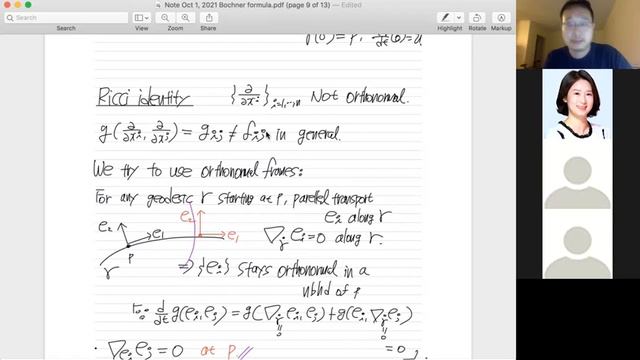 Note Oct 1, 2021 Bochner formula.pdf (page 9 of 13) — Edited
Search
Highlight
Markup
Rotate
γ(0) = p,
Ricci identity {∂/∂xⁱ}ᵢ₌₁,…,ₙ Not orthonormal.
g(∂/∂xⁱ, ∂/∂xʲ) = gᵢⱼ ≠ δᵢⱼ in general.
We try to use orthonormal frames:
For any geodesic γ starting at p, parallel transport
eᵢ along γ
e₂ e₁ e₂ e₁ ∇_γ̇ eᵢ = 0 along γ.
p
γ
⇒ {eᵢ} stays orthonormal in a
nbhd of p
∵ d/dt g(eᵢ, eⱼ) = g(∇_γ̇ eᵢ, eⱼ) + g(eᵢ, ∇_γ̇ eⱼ)
= 0
· ∇_eᵢ eⱼ = 0 at p.